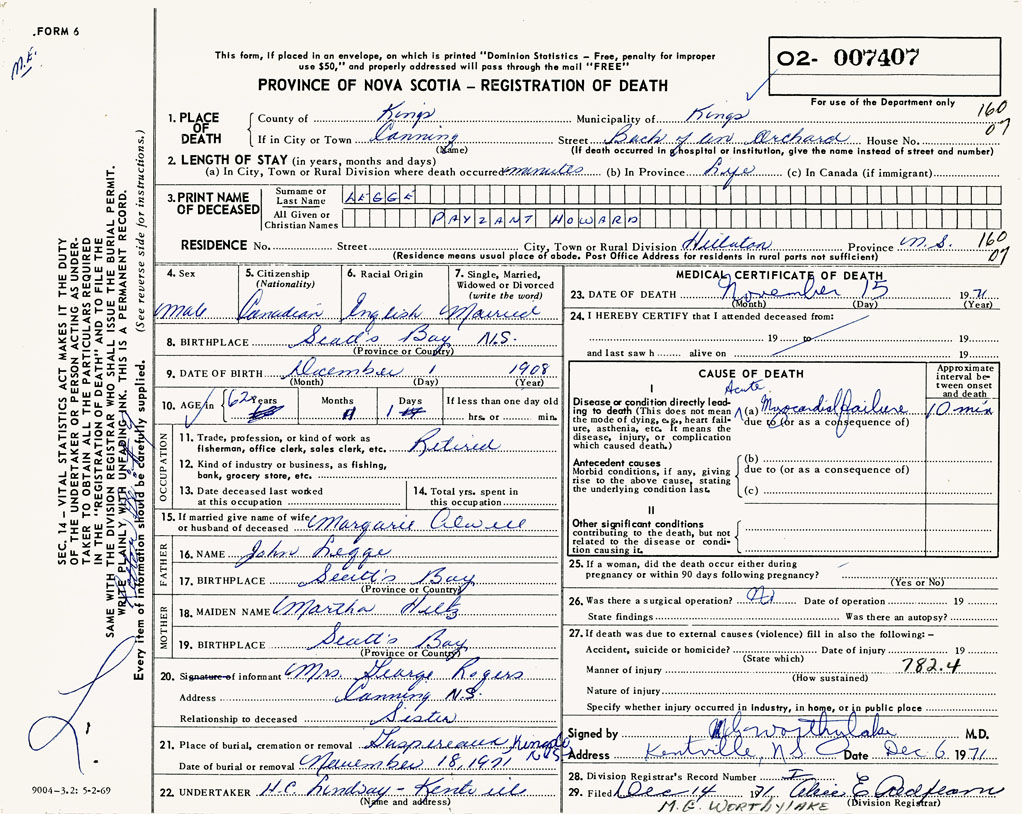 FORM 6
M.E.
This form, if placed in an envelope, on which is printed "Dominion Statistics – Free, penalty for improper
use $50," and properly addressed will pass through the mail "FREE"
PROVINCE OF NOVA SCOTIA – REGISTRATION OF DEATH
02- 007407
For use of the Department only
160
07
1. PLACE OF DEATH
County of Kings Municipality of Kings
If in City or Town Canning Street Back of an Orchard House No.
(Name) (If death occurred in hospital or institution, give the name instead of street and number)
2. LENGTH OF STAY (in years, months and days)
(a) In City, Town or Rural Division where death occurred minutes (b) In Province Life (c) In Canada (if immigrant)
3. PRINT NAME OF DECEASED
Surname or Last Name LEGGE
All Given or Christian Names PAYZANT HOWARD
RESIDENCE No. Street City, Town or Rural Division Hillaton Province N.S. 160
(Residence means usual place of abode. Post Office Address for residents in rural parts not sufficient) 07
4. Sex
male
5. Citizenship
(Nationality)
Canadian
6. Racial Origin
English
7. Single, Married,
Widowed or Divorced
(write the word)
Married
8. BIRTHPLACE Scott's Bay N.S.
(Province or Country)
9. DATE OF BIRTH December 1 1908
(Month) (Day) (Year)
10. AGE in 62 Years Months 11 Days 1 If less than one day old
hrs. or min.
OCCUPATION
11. Trade, profession, or kind of work as
fisherman, office clerk, sales clerk, etc. Retired
12. Kind of industry or business, as fishing,
bank, grocery store, etc.
13. Date deceased last worked
at this occupation
14. Total yrs. spent in
this occupation
15. If married give name of wife
or husband of deceased Margarie
FATHER
16. NAME John Legge
17. BIRTHPLACE Scott's Bay
(Province or Country)
MOTHER
18. MAIDEN NAME Martha Hiltz
19. BIRTHPLACE Scott's Bay
(Province or Country)
20. Signature of informant Mrs. George Rogers
Address Canning N.S.
Relationship to deceased Sister
21. Place of burial, cremation or removal Gaspereaux Kings Co N.S.
Date of burial or removal November 18, 1971
22. UNDERTAKER H.C. Lindsay - Kentville
(Name and address)
MEDICAL CERTIFICATE OF DEATH
23. DATE OF DEATH November 15 1971
(Month) (Day) (Year)
24. I HEREBY CERTIFY that I attended deceased from:
19 to 19
and last saw h alive on 19
CAUSE OF DEATH
Approximate
interval be-
tween onset
and death
I
Disease or condition directly lead-
ing to death (This does not mean
the mode of dying, e.g., heart fail-
ure, asthenia, etc. It means the
disease, injury, or complication
which caused death.)
Acute
(a) Myocardial failure 10 min
due to (or as a consequence of)
Antecedent causes
Morbid conditions, if any, giving
rise to the above cause, stating
the underlying condition last.
(b)
due to (or as a consequence of)
(c)
II
Other significant conditions
contributing to the death, but not
related to the disease or condi-
tion causing it.
25. If a woman, did the death occur either during
pregnancy or within 90 days following pregnancy?
(Yes or No)
26. Was there a surgical operation? No Date of operation 19
State findings Was there an autopsy?
27. If death was due to external causes (violence) fill in also the following: –
Accident, suicide or homicide? Date of injury 19
(State which)
Manner of injury 782.4
(How sustained)
Nature of injury
Specify whether injury occurred in industry, in home, or in public place
Signed by M G Worthylake M.D.
Address Kentville, N.S. Date Dec 6 1971
28. Division Registrar's Record Number
29. Filed Dec 14 1971 Alice E
(Division Registrar)
M.G. WORTHYLAKE
SEC. 14 – VITAL STATISTICS ACT MAKES IT THE DUTY
OF THE UNDERTAKER OR PERSON ACTING AS UNDER-
TAKER TO OBTAIN ALL THE PARTICULARS REQUIRED
IN THE "REGISTRATION OF DEATH" AND TO FILE THE
SAME WITH THE DIVISION REGISTRAR WHO SHALL ISSUE THE BURIAL PERMIT.
WRITE PLAINLY WITH UNFADING INK. THIS IS A PERMANENT RECORD.
Every item of information should be carefully supplied. (See reverse side for instructions.)
9004-3.2: 5-2-69